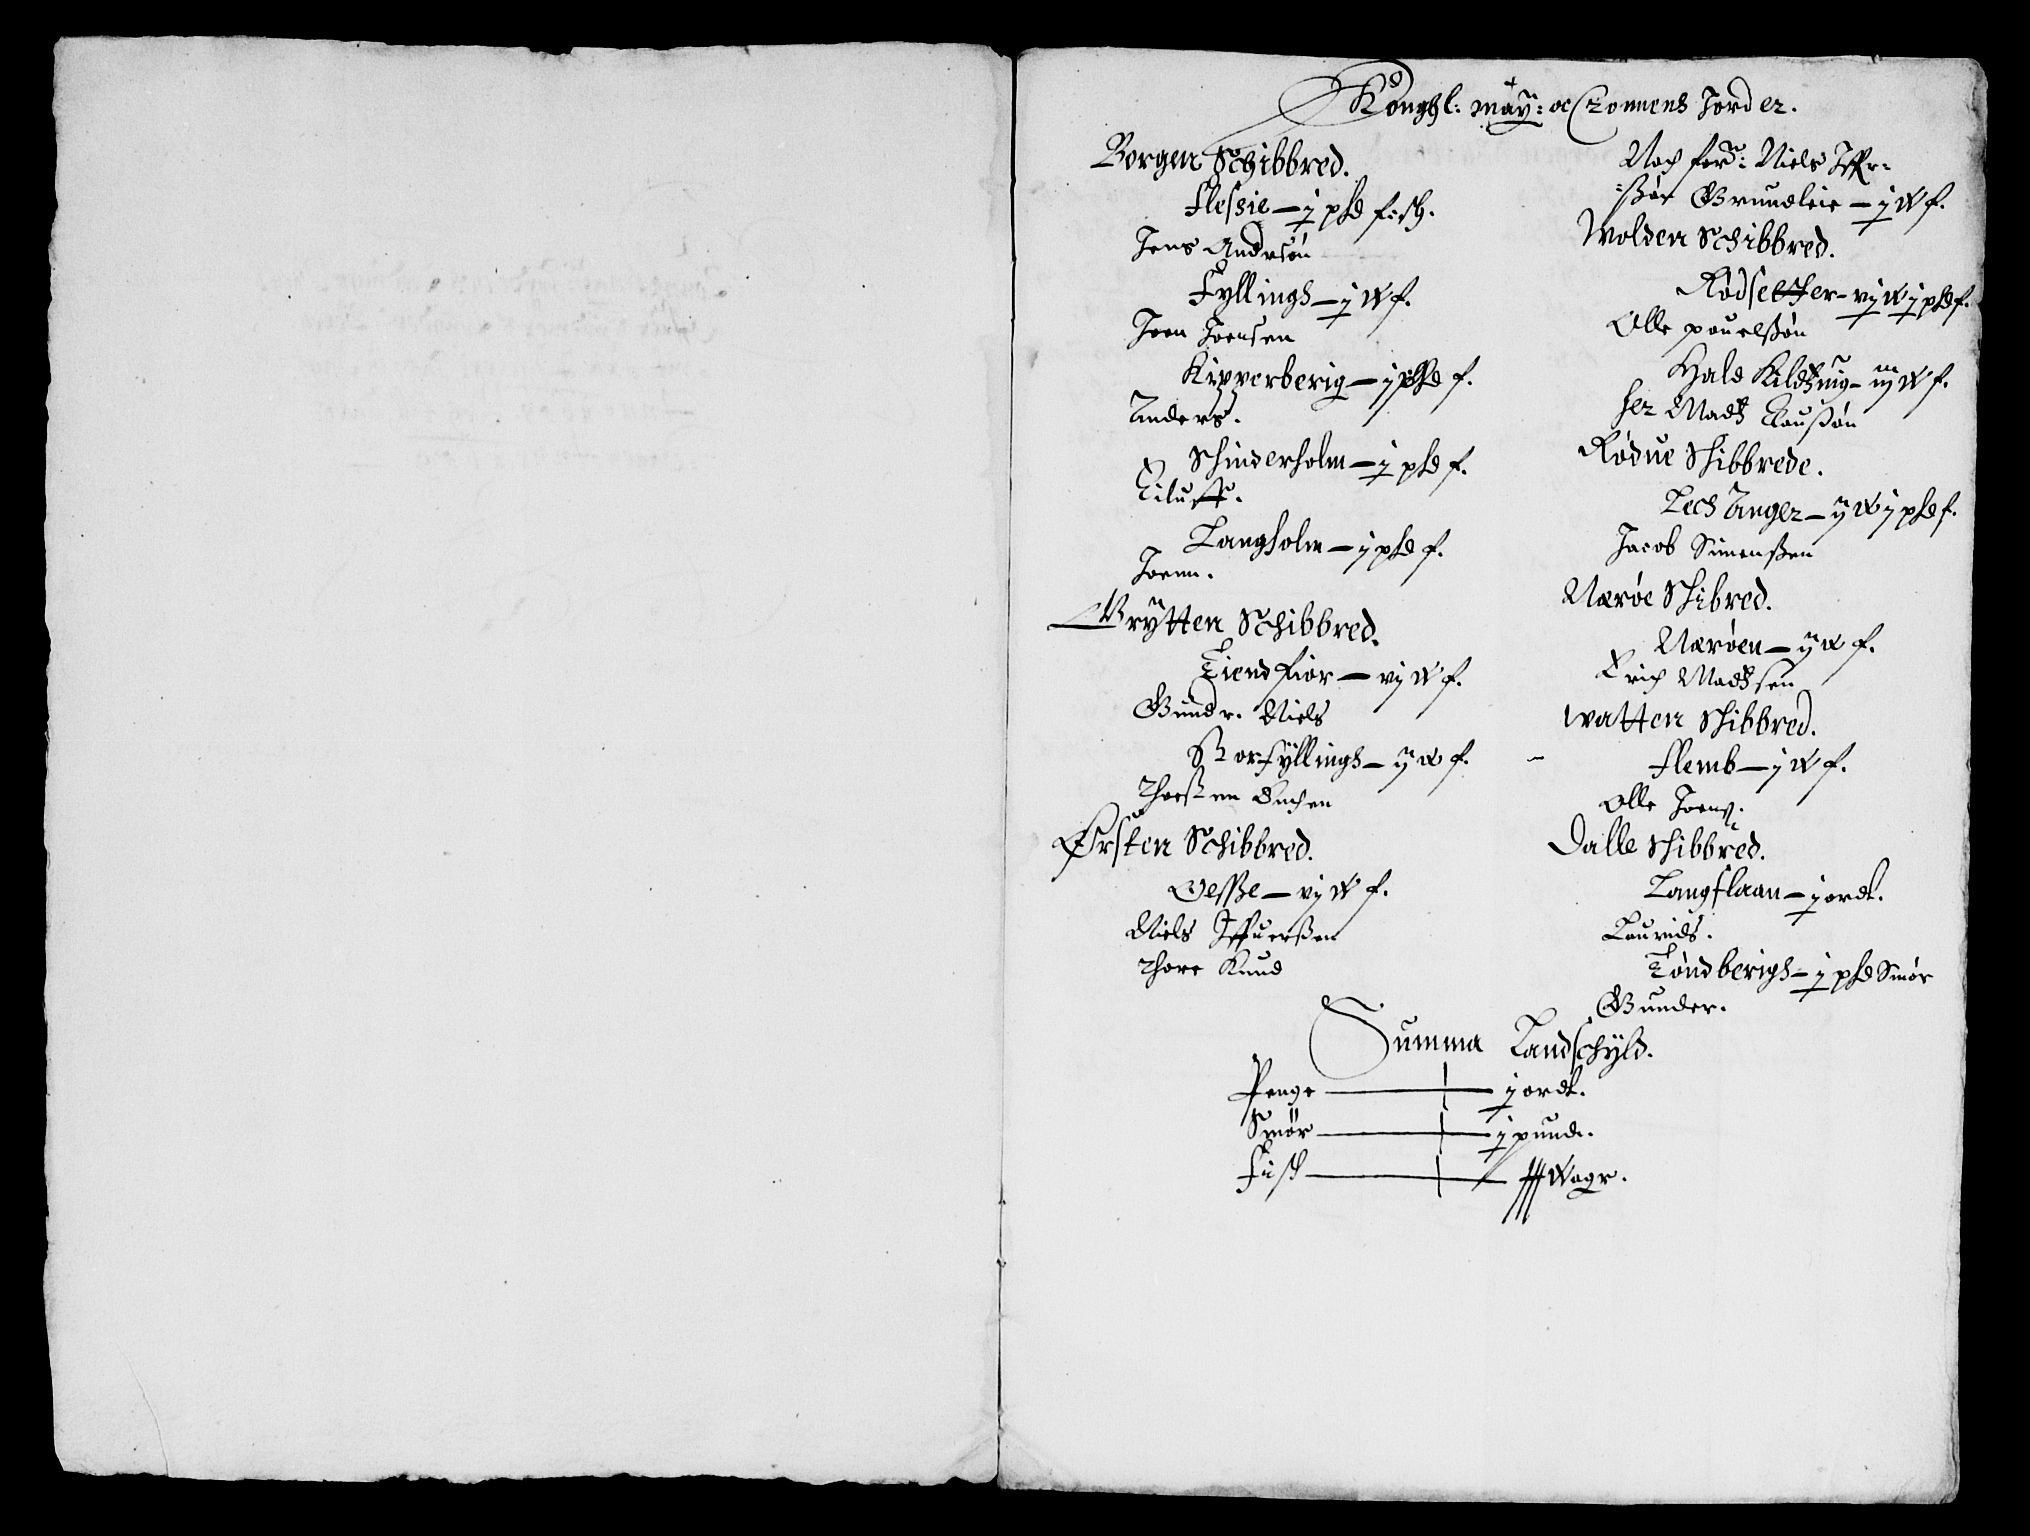 Konghl: may: oc Cronens Jorder.
Borgen Schibbred.
Flessie – j phd fisch.
Jens Andersøn
Fyllingh – j W f.
Joen Joensen
Kipperberig – j phd f.
Anders.
Schinderholm – j phd f.
Langholm – j phd f.
Joenn.
Grÿtten Schibbred.
Tiendfior – vj W f.
Gundr. Niels
Storfÿllingh – ij W f.
Thorsten
Ørsten Schibbred.
Oessze – vj W f.
Niels Iffuerszen
Thore Knud
Noch for: Niels Iffr-
:szør Grundleie – j W f.
Wolden Schibbred.
Rødsetter – vj W j phd f.
Olle pouelszøn
Hale Kildring – iij W f.
her Madz Clauszøn
Rødue Schibbrede.
Lech Anger – ij W j phd f.
Jacob Simenszen
Nærøe Schibred.
Nærøen – ij W f.
Erich Madzsen
Watten Schibbred.
Flemb – j W f.
Olle Joens.
Dalle Schibbred.
Langflaan – j ordt.
Laurids.
Tøndberigh – j phd Smør
Gunder.
Summa Landschÿld.
Penge — j ordt.
Smør — j pund.
Fisch — Woger.